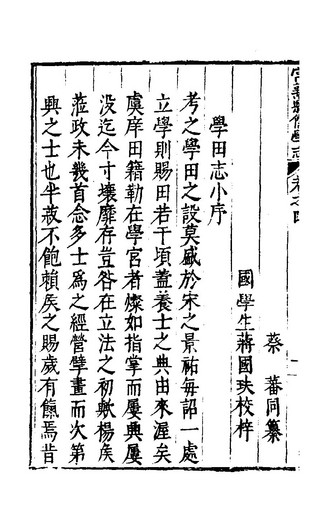 常熟縣儒學志 卷之四
蔡蕃同纂
國學生蔣國玞校梓
學田志小序
考之學田之設莫盛於宋之景祐每詔一處
立學則賜田若干頃蓋養士之典由來渥矣
虞庠田籍勒在學宮者燦如指掌而屢興屢
没迄今寸壤靡存豈咎在立法之初歟楊矦
蒞政未幾首念多士爲之經營擘畫而次第
興之士也半菽不飽賴矦之賜歲有餼焉昔